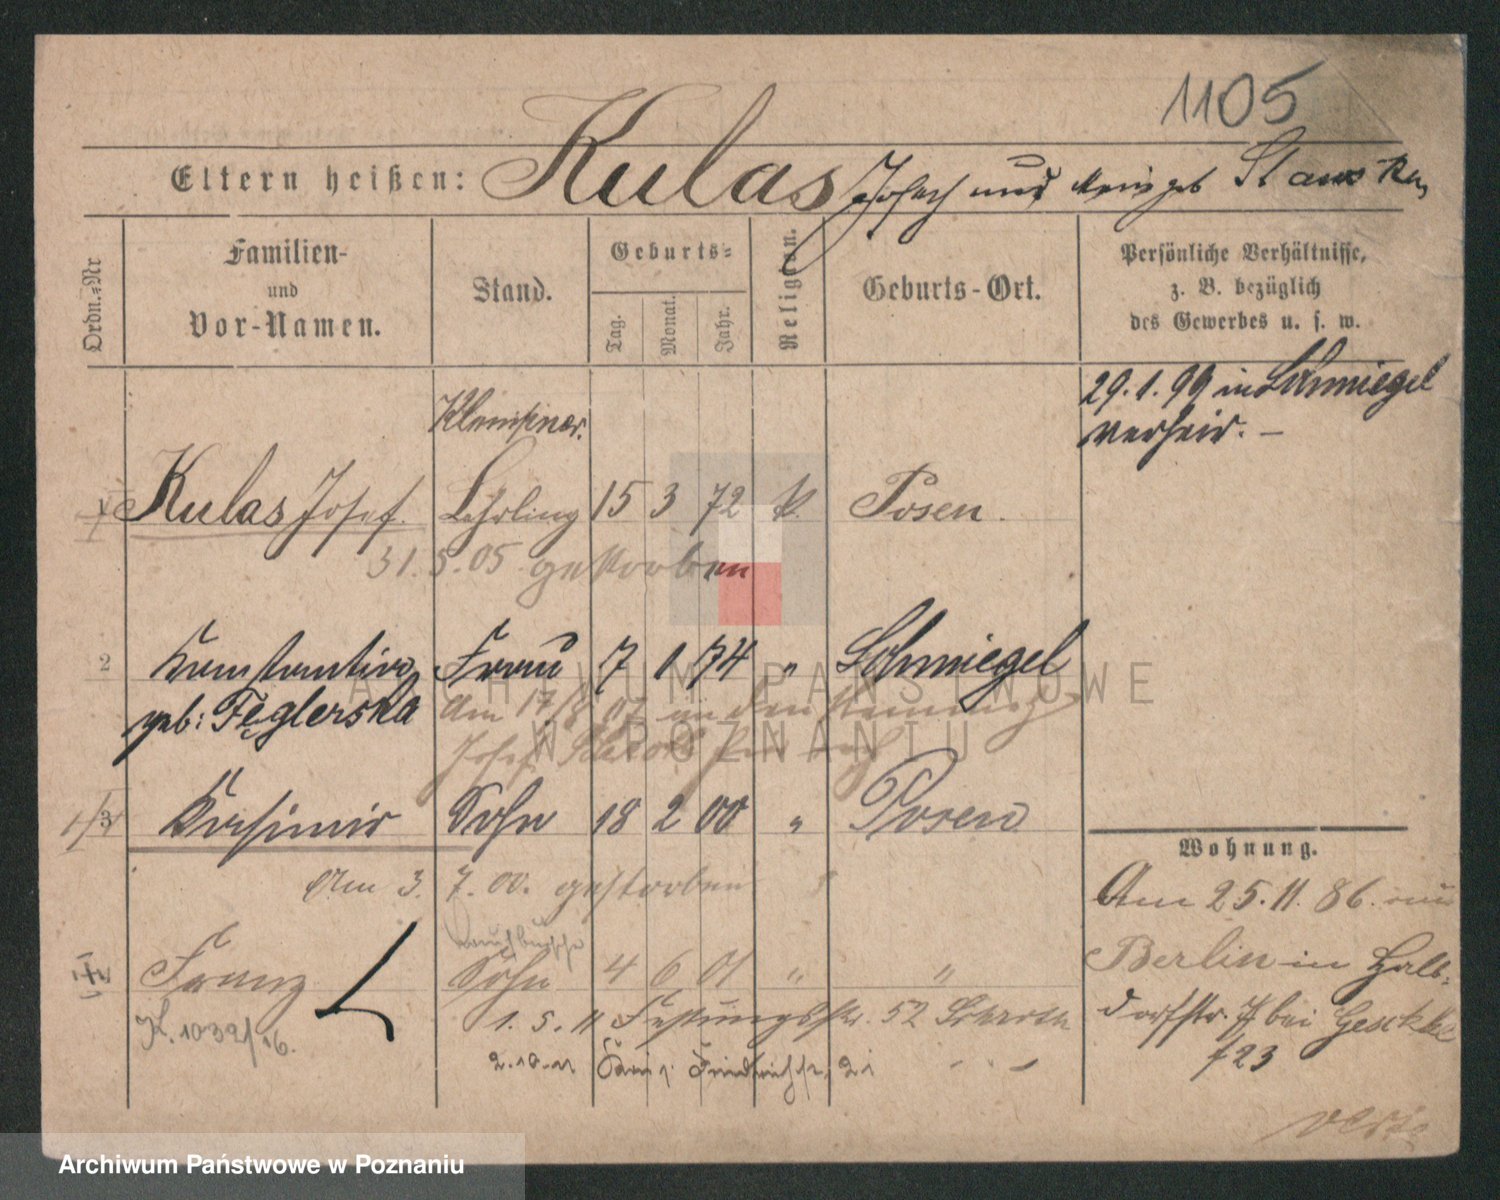 1105
Eltern heißen: Kulas Joseph und geb Stam
Ordn.-Nr
Familien-
und
Vor-Namen.
Stand.
Geburts-
Tag.
Monat.
Jahr.
Religion.
Geburts-Ort.
Persönliche Verhältnisse,
z. B. bezüglich
des Gewerbes u. s. w.
29.1.99 in Schmiegel
verheir. –
Klempner.
1 Kulas Josef. Lehrling 15 3 72 k. Posen.
31.5.05 gestorben
2 Konstantina Frau 7 1 74 " Schmiegel
geb: Feglerska
Am 17/8 07 an den
Josef
3 Kasimir Sohn 18 2 00 " Posen
Am 3. 7. 00. gestorben
Laufbursche
Franz Sohn 4 6 01 " "
K. 1032/16.
1. 5. 11 Festungsstr. 52
2.10.11 Friedrichstr. 21
Wohnung.
Am 25.11.86. aus
Berlin in Halb-
dorfstr. 7 bei
723
verte
ARCHIWUM PAŃSTWOWE
W POZNANIU
Archiwum Państwowe w Poznaniu